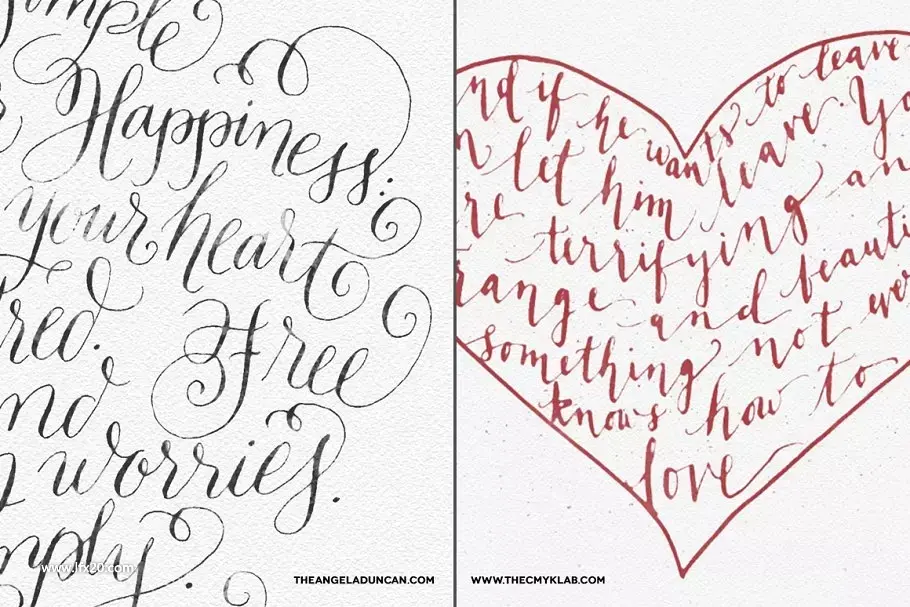 Happiness:
your heart
red.
Free
nd
worries.
mply.
www.lfx20.com
THEANGELADUNCAN.COM
nd if he wants to leave
let him leave. Yo
re terrifying an
range and beauti
something not ever
knows how to
love
WWW.THECMYKLAB.COM